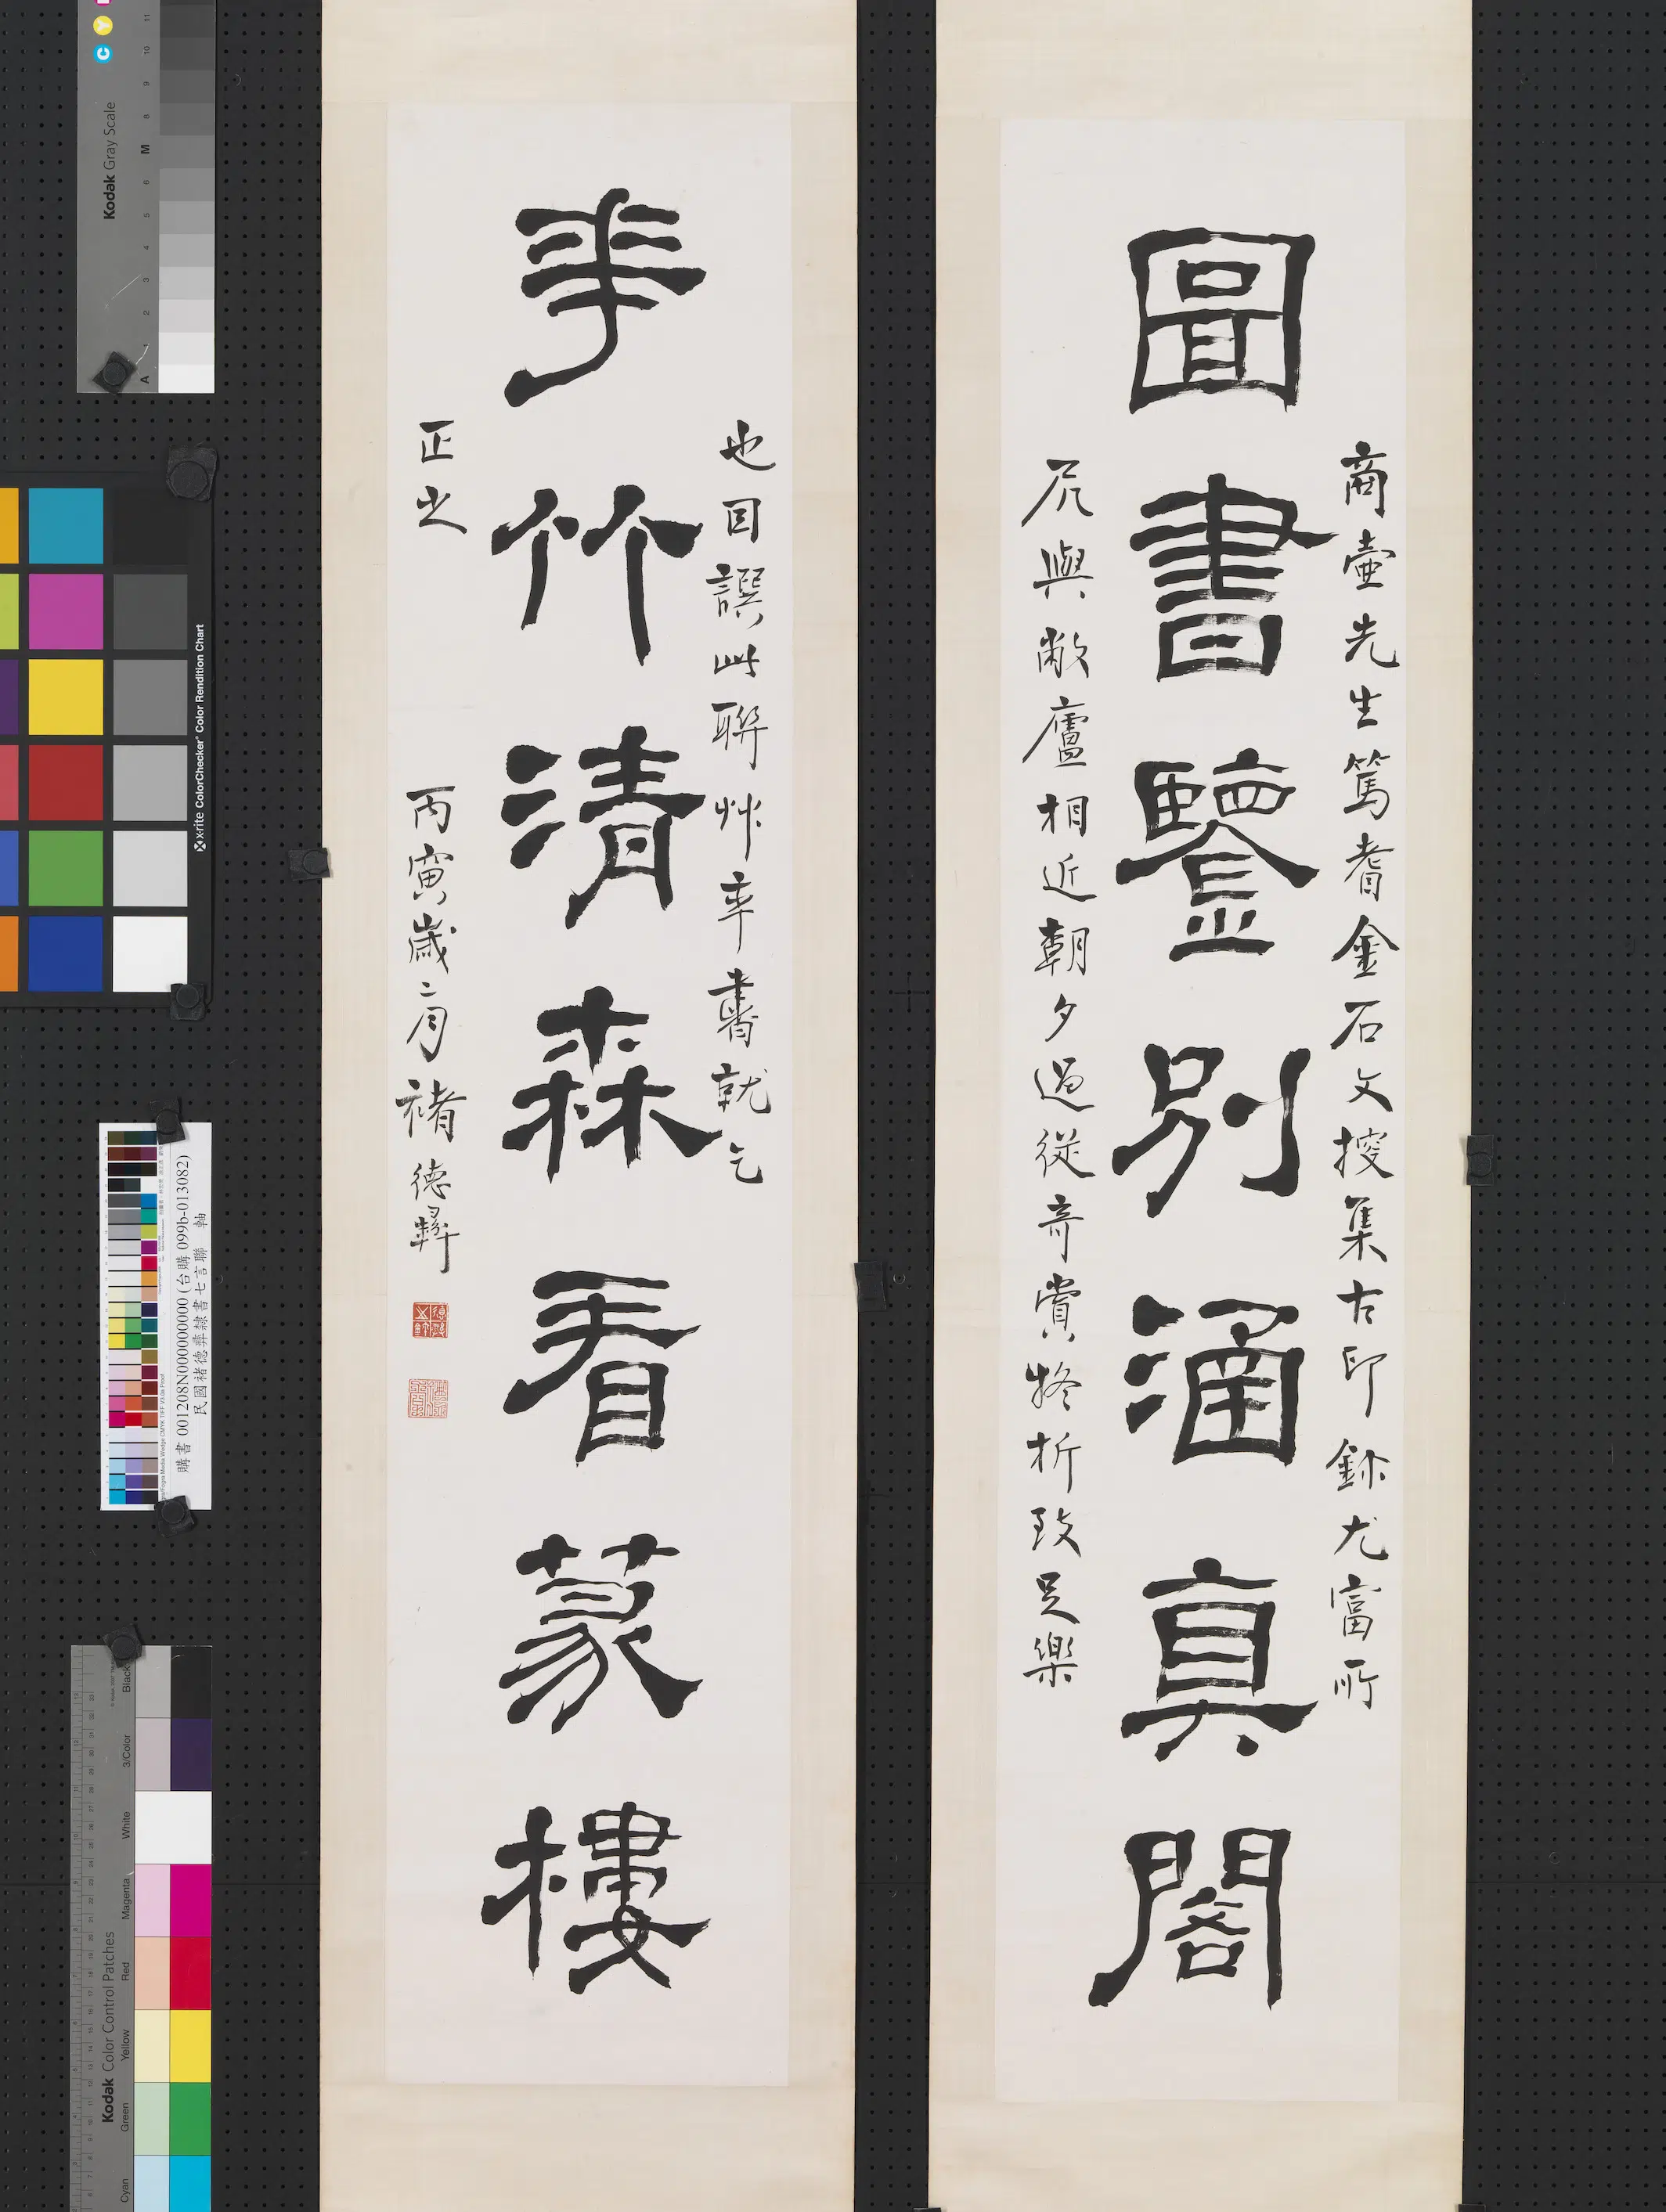 商壺先生篤耆金石文搜集古印鉨尤富所
圖書鑒別涵真閣
凥與敝廬相近朝夕過從奇賞疑析致足樂
也囙譔此聯艸率書就乞
華竹清森看篆樓
正之
丙寅歲二月褚德彝
Kodak Gray Scale
C Y M
A 1 2 3 4 5 6 M 8 9 10 11
x-rite ColorChecker Color Rendition Chart
購書 001208N000000000 (台購 099b-013082)
民國褚德彝隸書七言聯 軸
Kodak Color Control Patches
Cyan Green Yellow Red Magenta White 3/Color Black